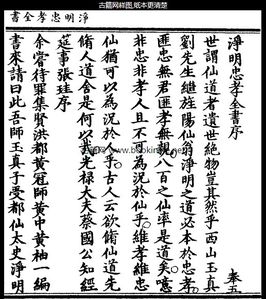 古籍网样图,纸本更清楚
淨明忠孝全書
淨明忠孝全書序
世謂仙道者遺世絕物豈其然乎西山玉真
劉先生繼旌陽仙翁淨明之道必本於忠孝
匪忠無君匪孝無親八百之仙率是道矣噫
非忠非孝人且不可為況於仙乎維孝維忠
仙猶可以為況於人乎古人云欲脩仙道先
脩人道舍是何以哉光祿大夫蔡國公知經
筵事張珪序
余嘗待罪集賢洪都黃冠師黃中黃袖一編
書來請曰此吾師玉真子受都仙太史淨明